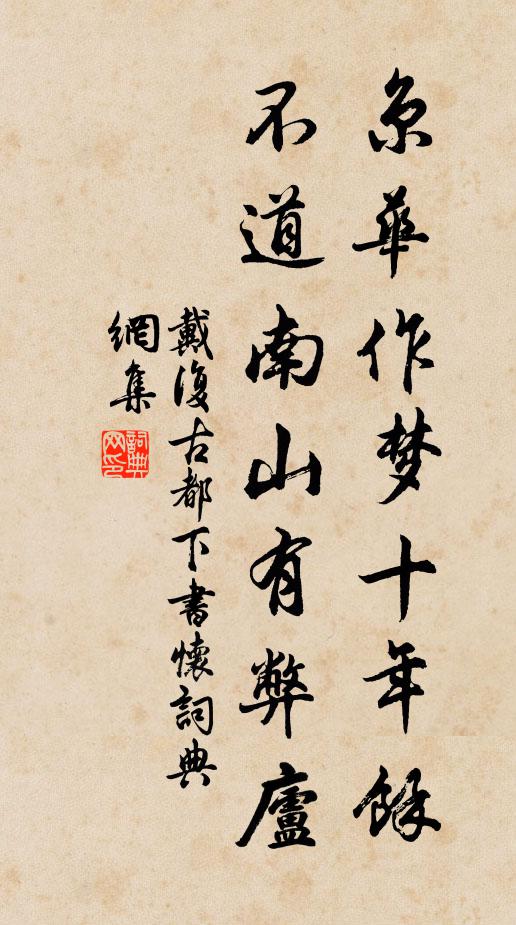 京華作梦十年餘
不道南山有弊廬
戴復古都下書懷詞典
網集
詞典网印